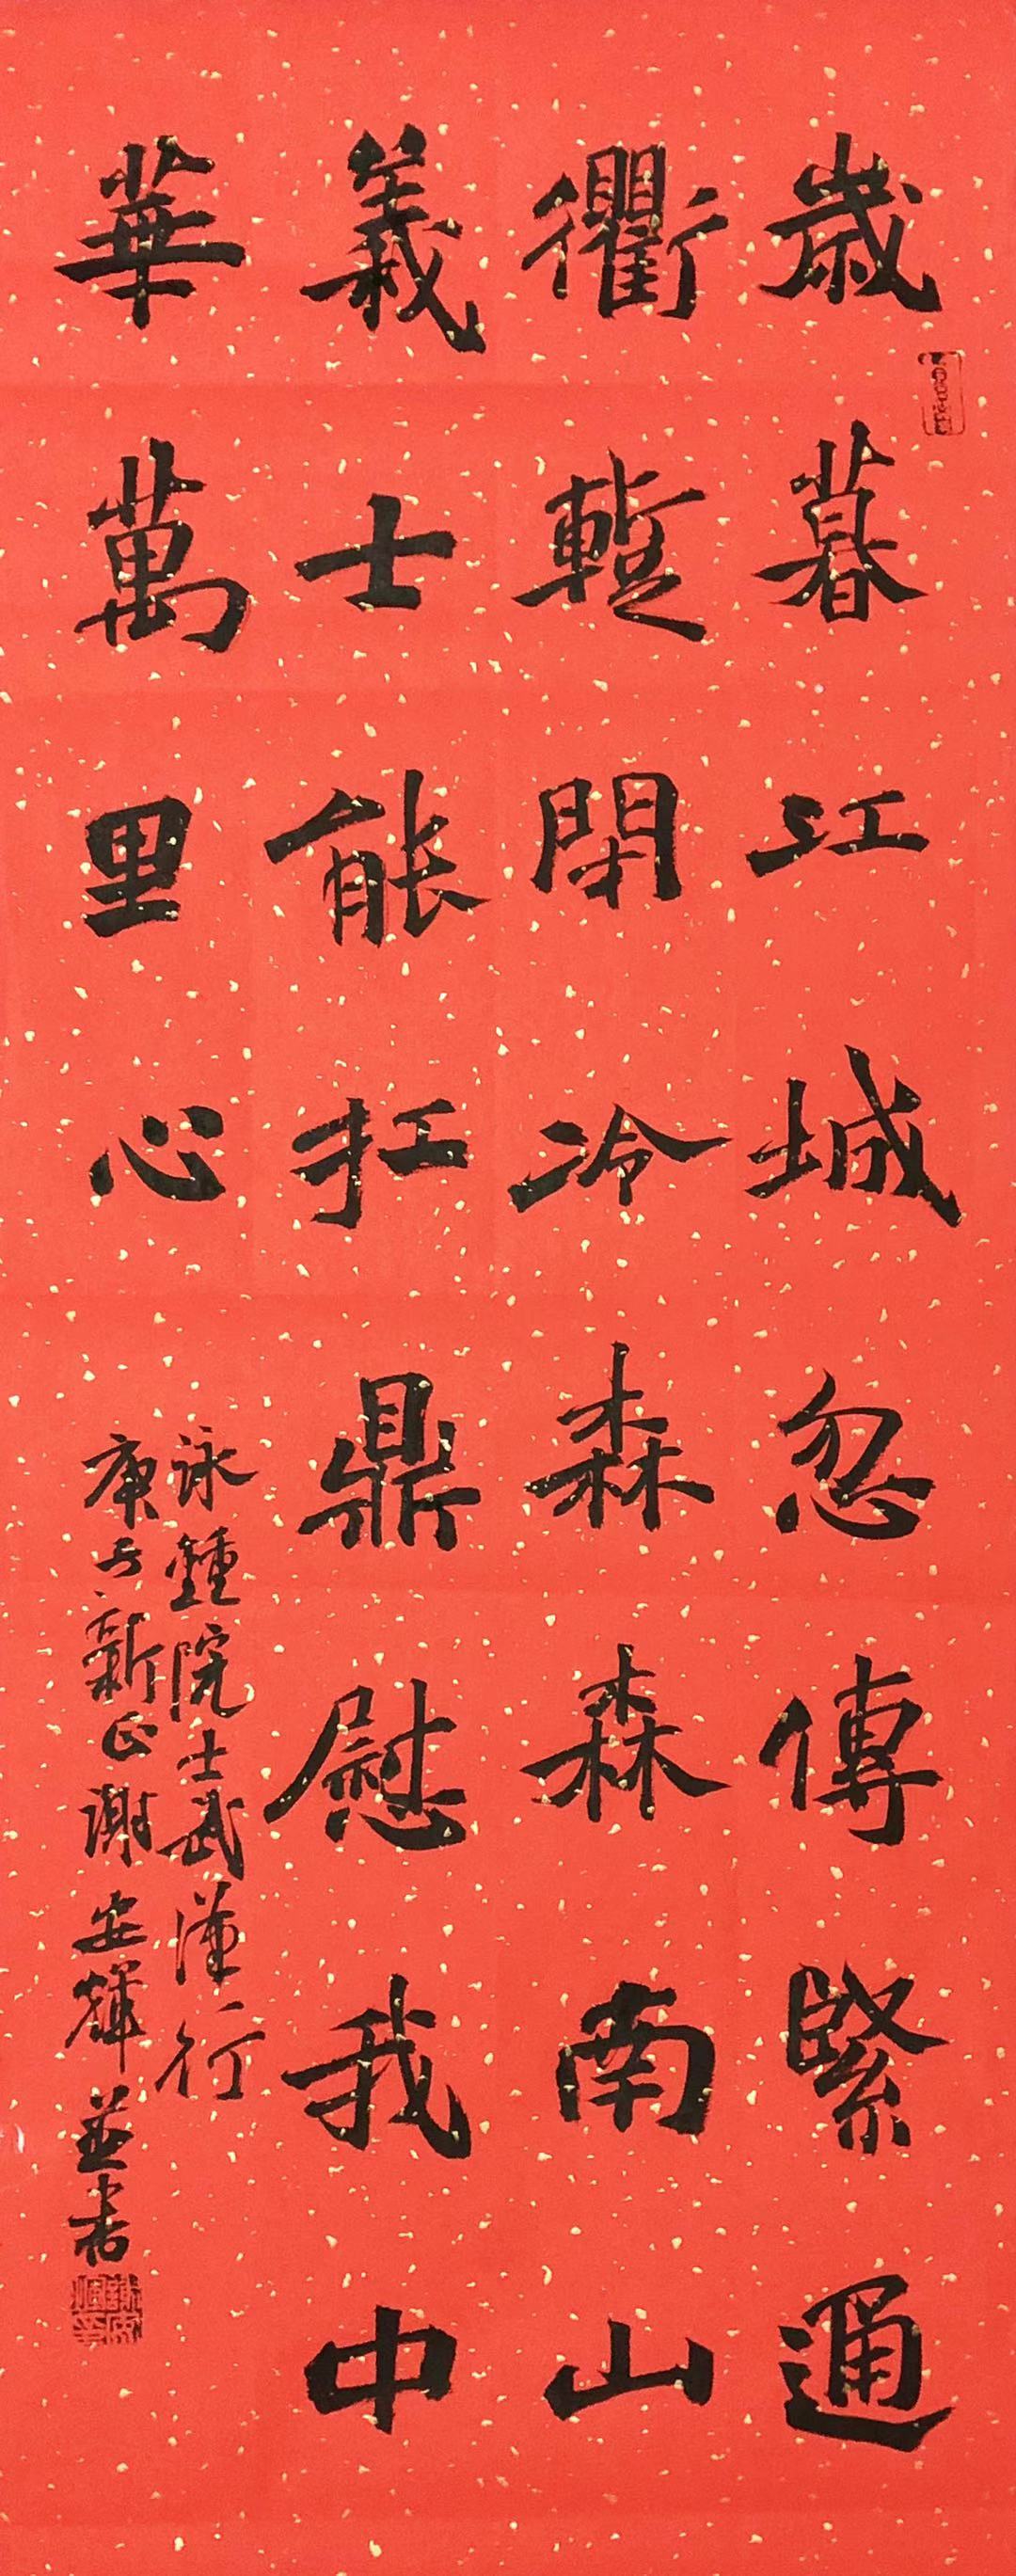 歲暮江城忽傳緊通
衢蹔閉冷森森南山
義士能扛鼎慰我中
華萬里心
詠鍾院士武漢行
庚子新正謝安輝並書